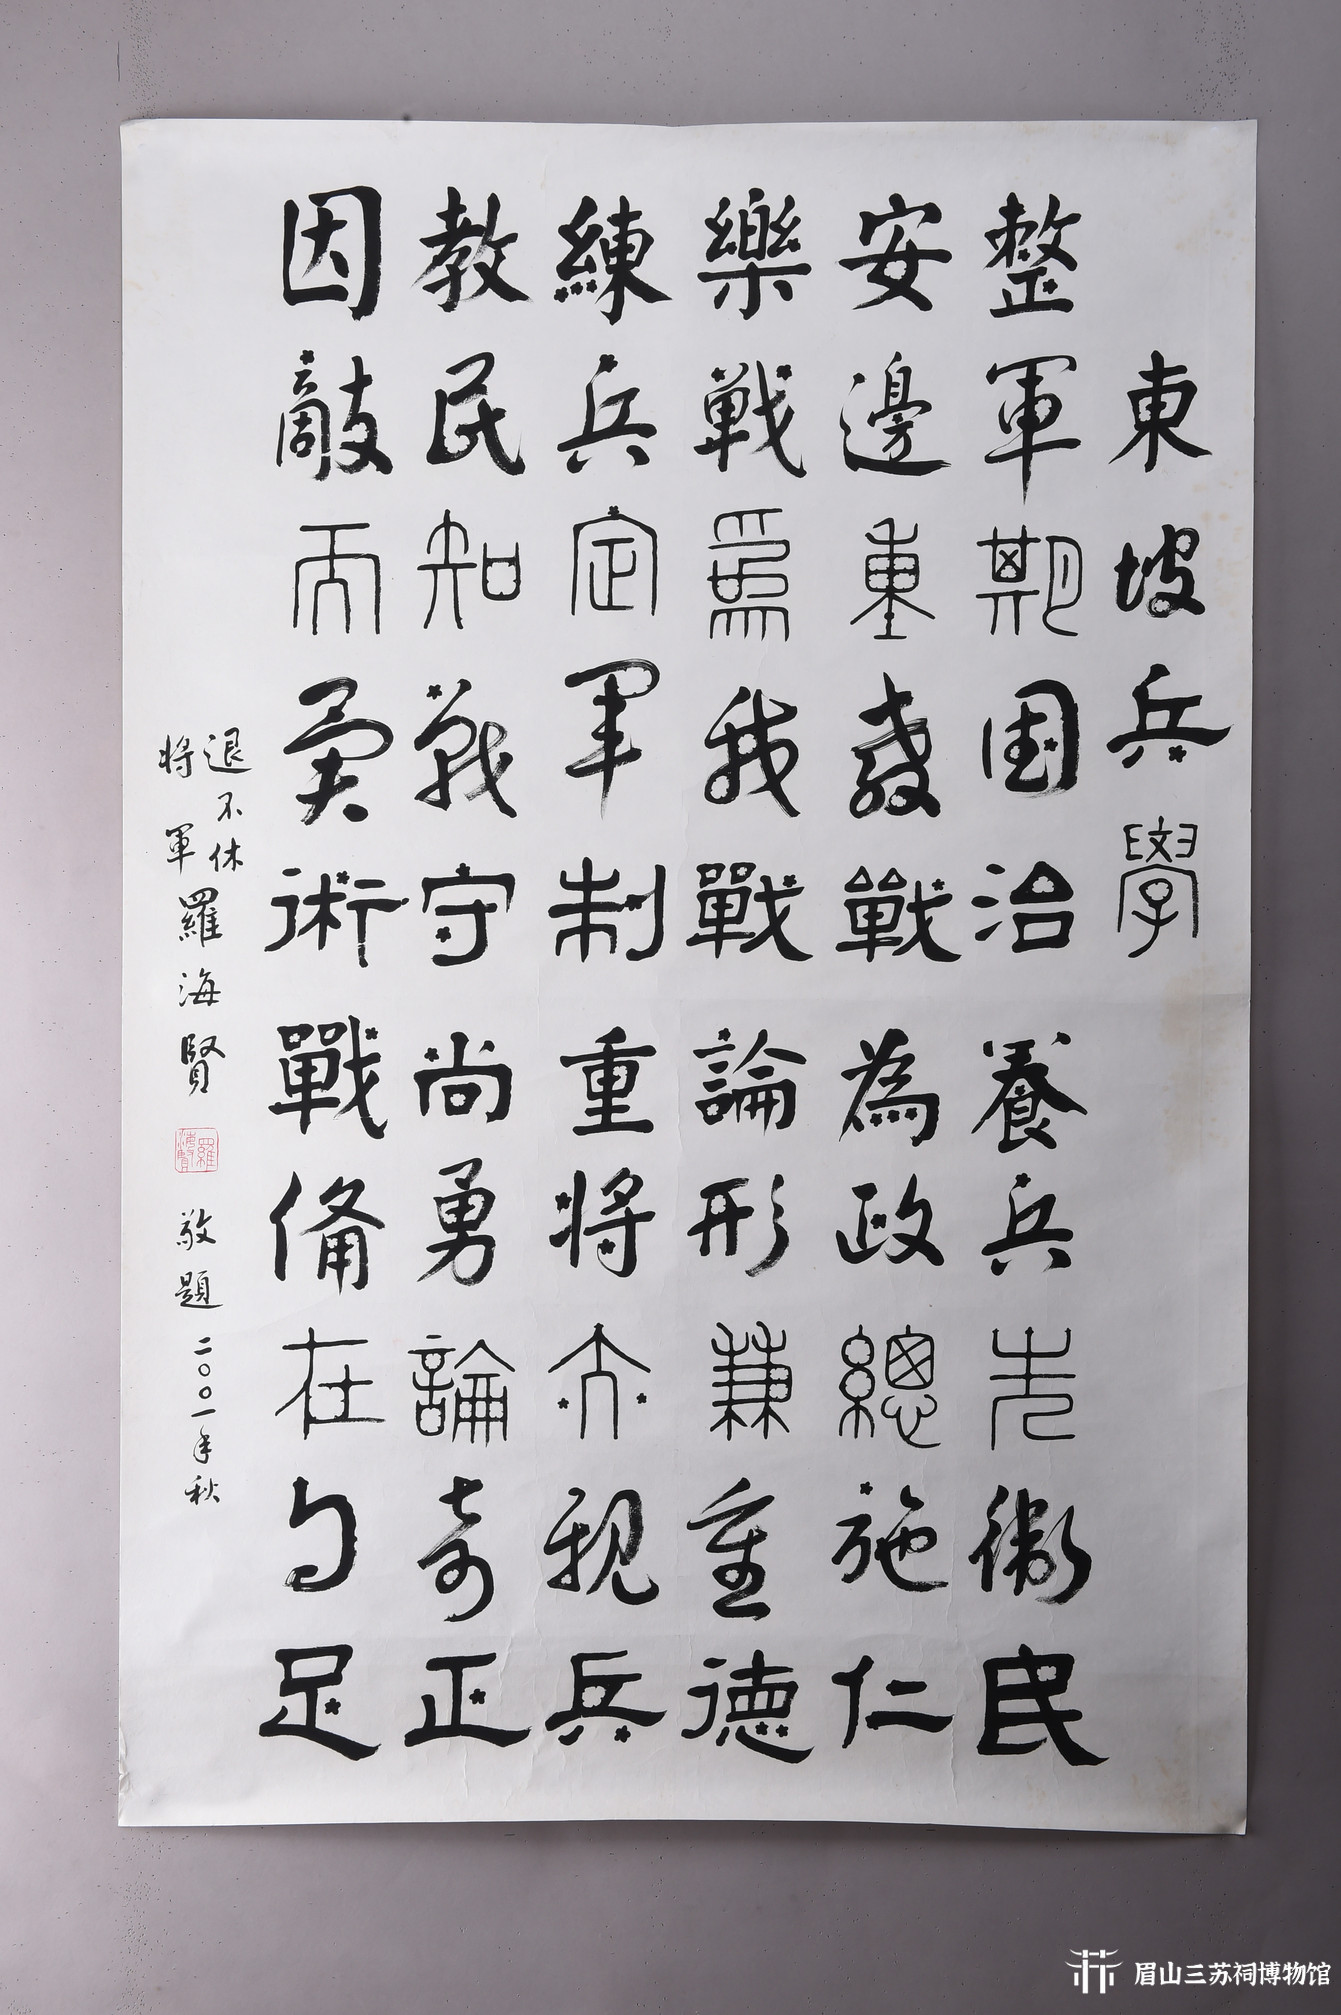 東坡兵學
整軍期国治養兵先衛民
安邊重教戰為政總施仁
樂戦爲我戰論形兼重德
練兵定軍制重将亦親兵
教民知戰守尚勇論奇正
因敵而異術戰備在自足
退不休
将軍羅海賢
羅海賢
敬題二〇〇一年秋
眉山三苏祠博物馆